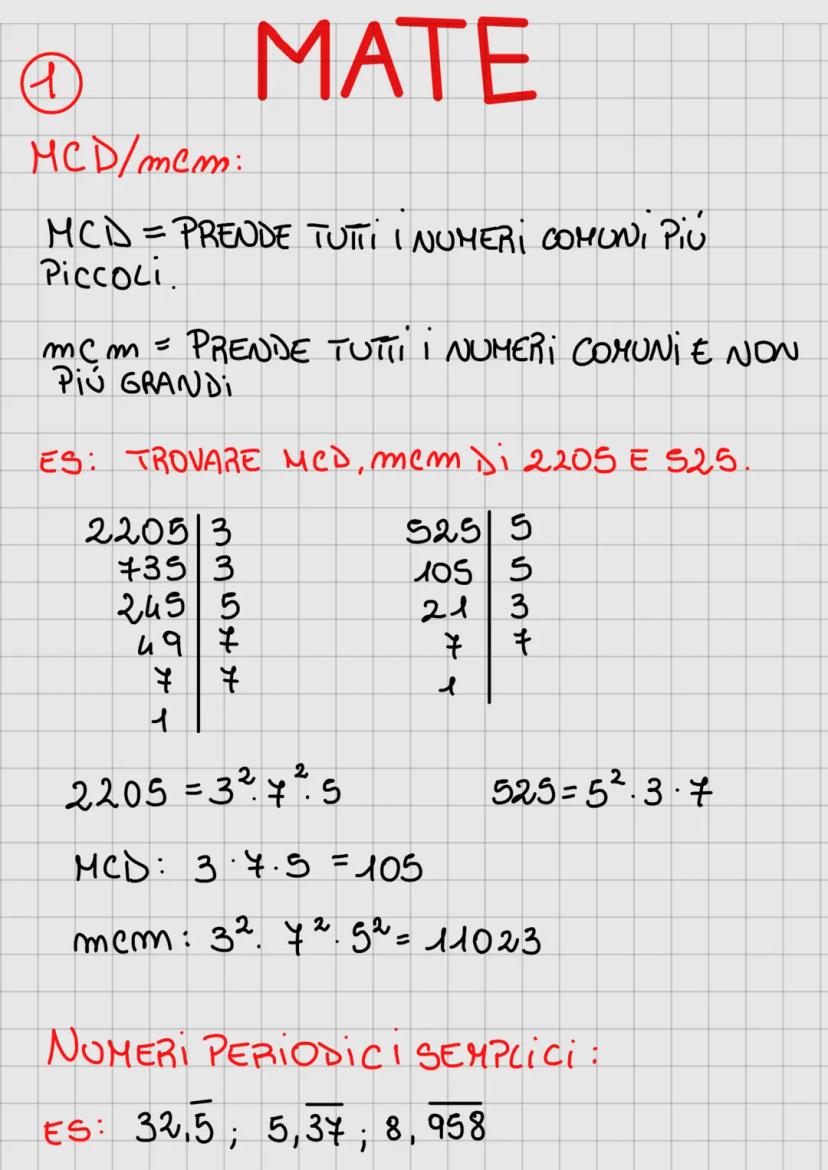 MATE
1
MCD/mcm:
MCD = PRENDE TUTTI I NUMERI COMUNI PIÚ
PICCOLI.
mcm = PRENDE TUTTI I NUMERI COMUNI E NON
PIÚ GRANDI
ES: TROVARE MCD, mcm DI 2205 E 525.
2205 | 3    525 | 5
735 | 3    105 | 5
245 | 5    21 | 3
49 | 7    7 | 7
7 | 7    1 |
1 |
2205 = 3². 7². 5    525 = 5² · 3 · 7
MCD: 3 · 7 . 5 = 105
mcm: 3². 7². 5² = 11023
NUMERI PERIODICI SEMPLICI:
ES: 32,5̅ ; 5,3̅7̅ ; 8,9̅5̅8̅